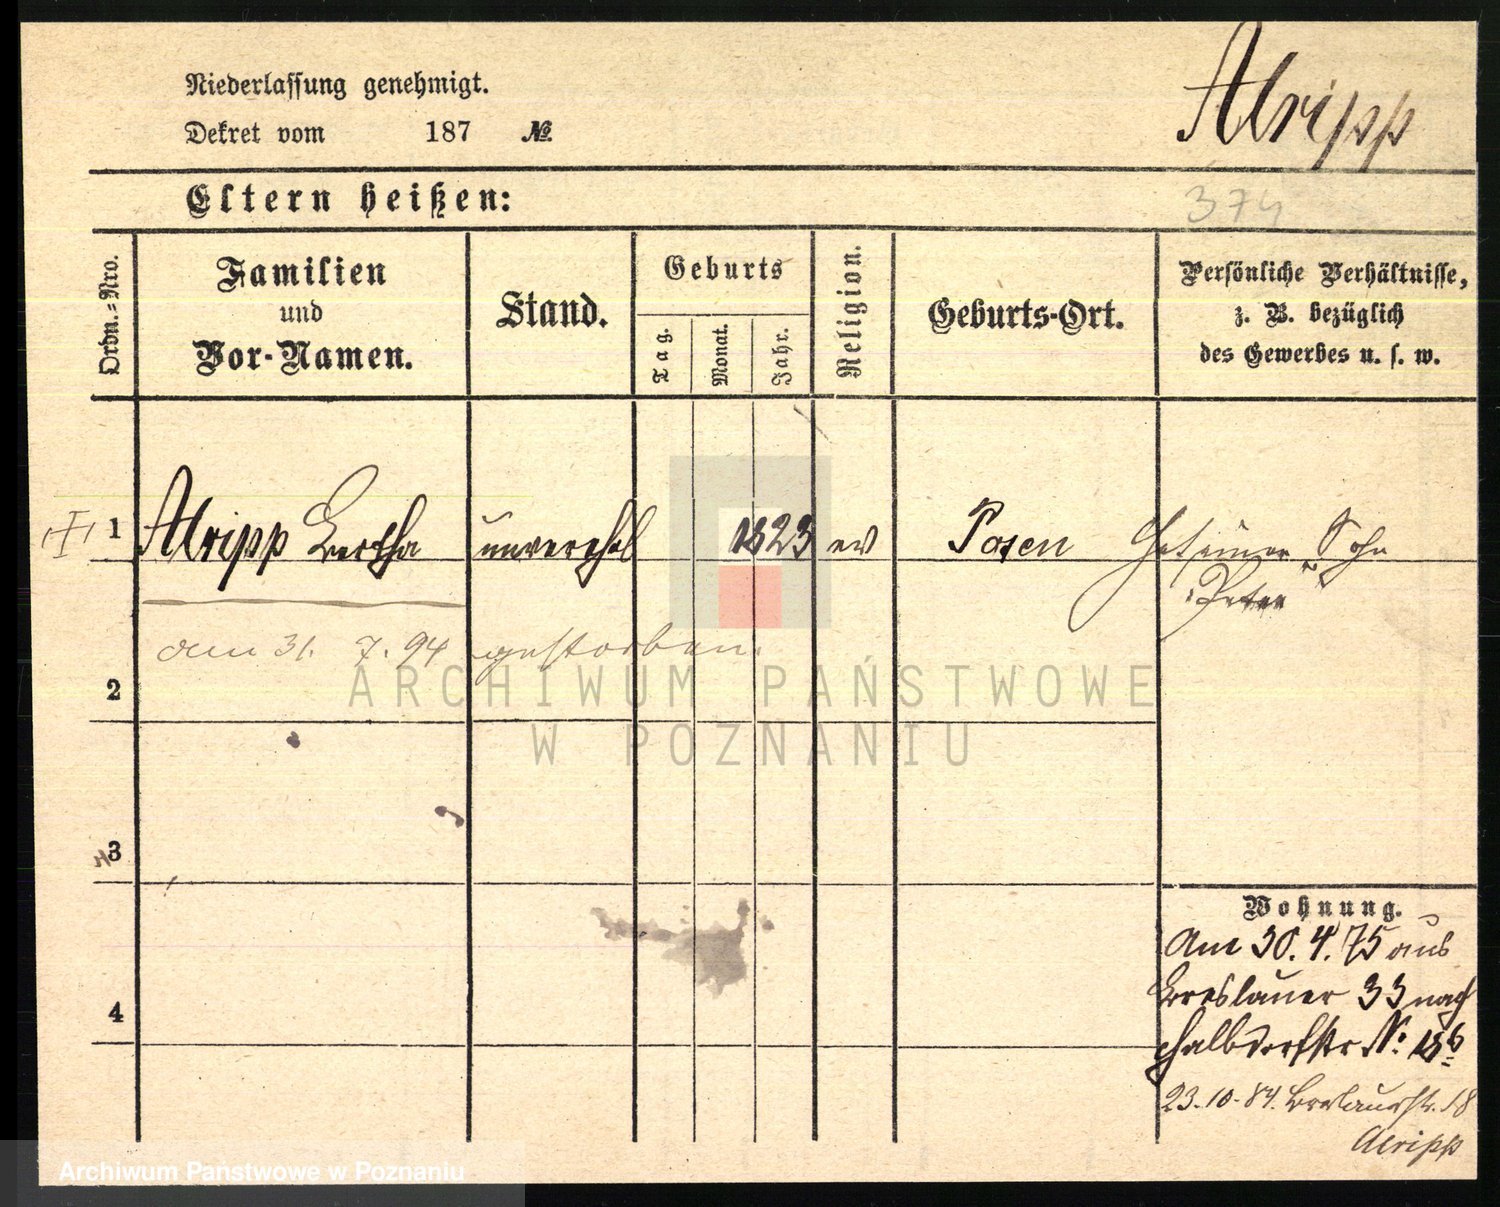 Niederlassung genehmigt.
Dekret vom 187 No
Alripp
Eltern heißen:
374
Ordn.=Nro.
Familien
und
Vor-Namen.
Stand.
Geburts
Tag.
Monat.
Jahr.
Religion.
Geburts-Ort.
Persönliche Verhältnisse,
z. B. bezüglich
des Gewerbes u. s. w.
1 Alripp Bertha unverehel 1823 ev Posen Hat einen Sohn
"Peter"
am 31. 7. 94 gestorben.
2
ARCHIWUM PAŃSTWOWE
W POZNANIU
3
4
Wohnung.
Am 30. 4. 75 aus
Breslauer 33 nach
Halbdorfstr No 18b
23.10.84. Breslauerstr. 18
Alripp
Archiwum Państwowe w Poznaniu